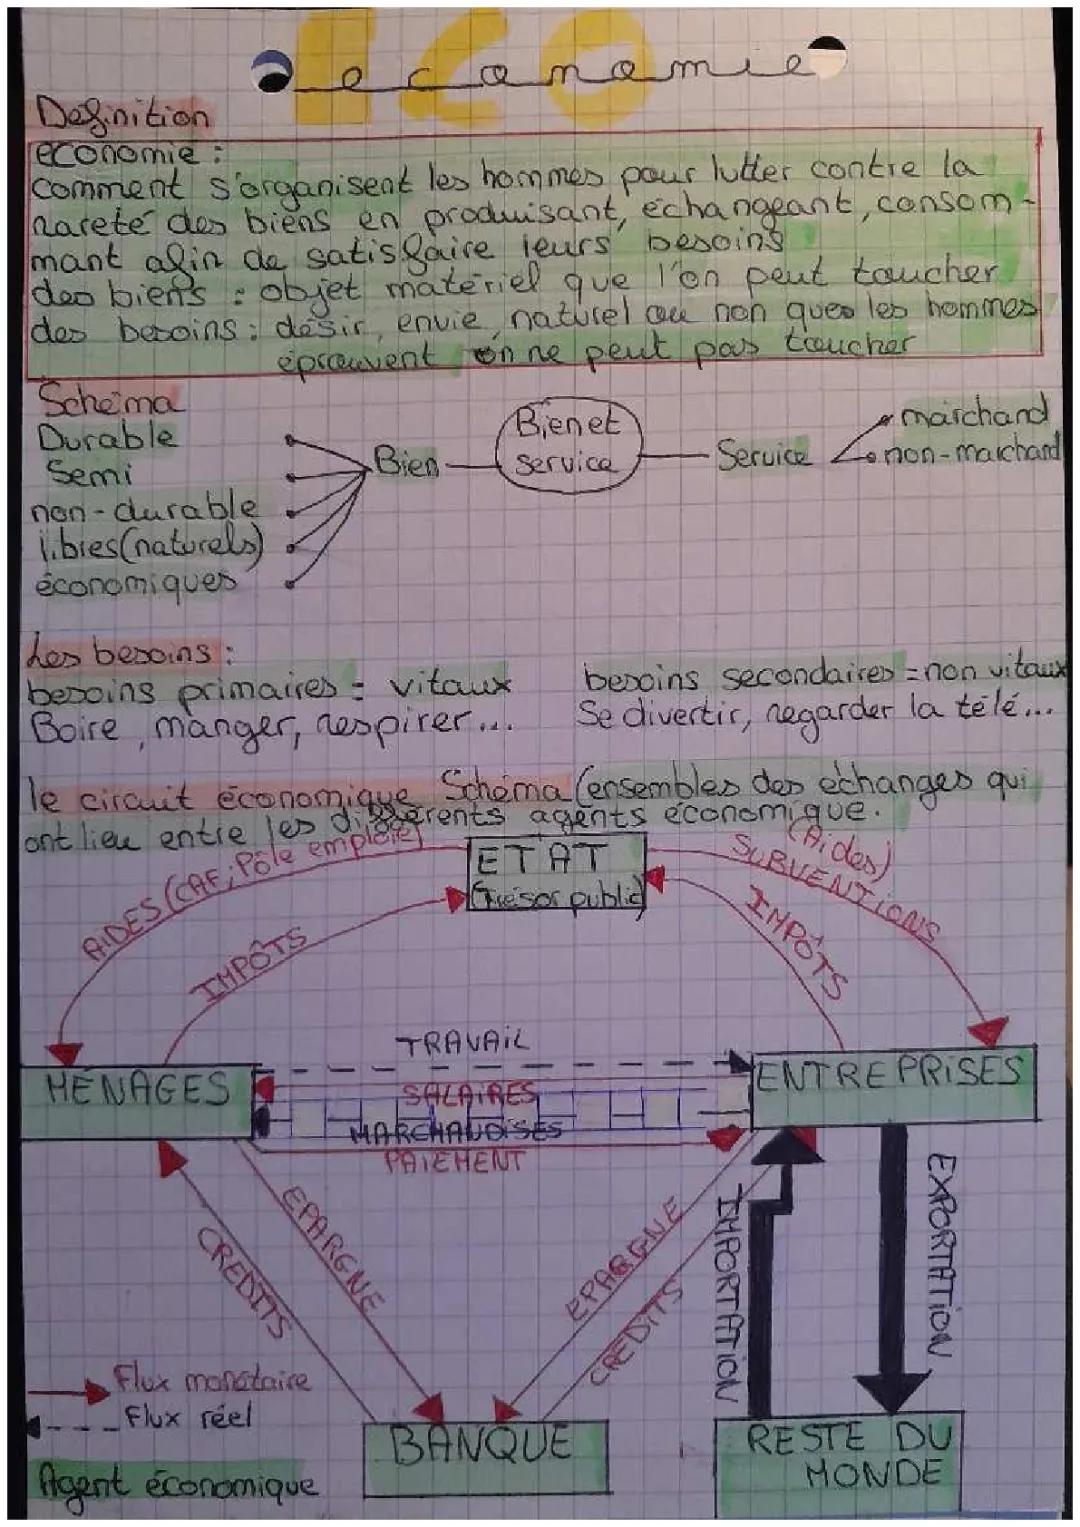 ECO
economie
Definition
economie :
comment s'organisent les hommes pour lutter contre la
rareté des biens en produisant, échangeant, consom-
mant afin de satisfaire leurs besoins
des biens : objet matériel que l'on peut toucher
des besoins : désir, envie, naturel ou non ques les hommes
éprouvent on ne peut pas toucher
Schéma
Durable
Semi
non-durable
libres (naturels)
économiques
Bien
Bien et
service
Service
marchand
non-marchand
Les besoins :
besoins primaires = vitaux
Boire, manger, respirer...
besoins secondaires = non vitaux
Se divertir, regarder la télé...
le circuit économique Schéma (ensembles des échanges qui
ont lieu entre les différents agents économique.
AIDES (CAF, Pôle emploie)
ETAT
(Trésor public)
(Aides)
SUBVENTIONS
IMPÔTS
IMPÔTS
TRAVAIL
MÉNAGES
SALAIRES
ENTREPRISES
MARCHANDISES
PAIEMENT
EPARGNE
CREDITS
EPARGNE
CREDITS
IMPORTATION
EXPORTATION
Flux monétaire
Flux réel
BANQUE
RESTE DU
MONDE
Agent économique